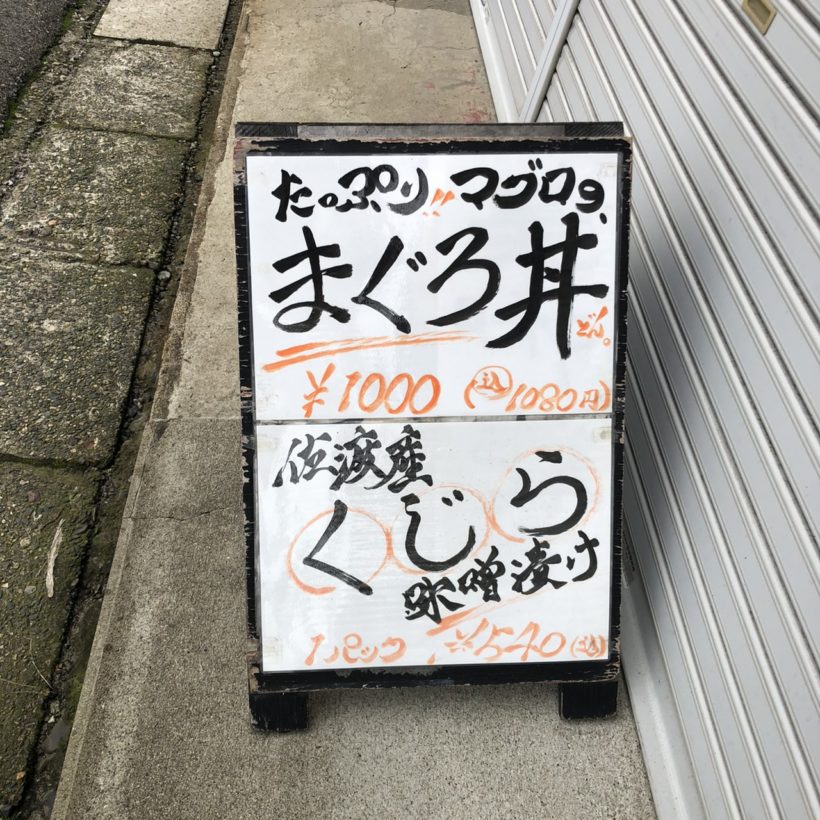 たっぷり!! マグロの、
まぐろ丼
どん。
¥1000 (込1080円)
佐渡産
くじら
味噌漬け
1パック ¥540(込)